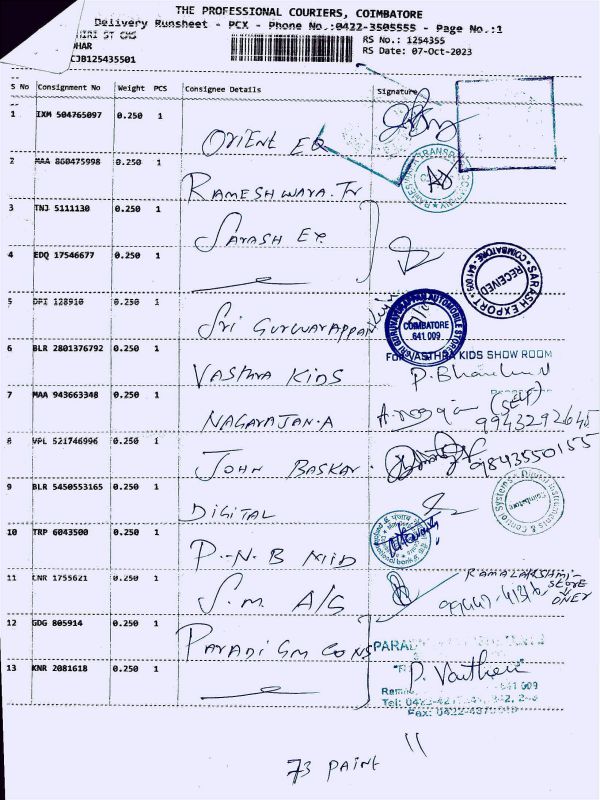 THE PROFESSIONAL COURIERS, COIMBATORE
Delivery Runsheet - PCX - Phone No.:0422-3505555 - Page No.:1
ST CMS
RS No.: 1254355
DHAR
RS Date: 07-Oct-2023
CJB125435501
S No Consignment No Weight PCS Consignee Details Signature
1 IXM 504765097 0.250 1 ORIENT EQ
2 MAA 860475998 0.250 1 RAMESHWARA. Tr
3 TNJ 5111130 0.250 1 SARASH EX.
4 EDQ 17546677 0.250 1
COIMBATORE - 641 009
RECEIVED
SARASH EXPORT
5 DPI 128910 0.250 1 Sri GURUVAYAPPAN
AUTOMOBILE STORES
COIMBATORE
641 009
6 BLR 2801376792 0.250 1 VASTHRA KIDS
FOR VASTHRA KIDS SHOW ROOM
7 MAA 943663348 0.250 1 NAGARAJAN.A (SELF)
9943292645
8 VPL 521746996 0.250 1 JOHN BASKAR. 9843550155
9 BLR 5450553165 0.250 1 DIGITAL
Control Systems & Digital Instruments
Coimbatore
10 TRP 6043500 0.250 1 P.N.B MID
11 CNR 1755621 0.250 1 S.M. A/G
RAMALAKSHMI STORE
12 GDG 805914 0.250 1 PARADIGM CONS
PARAD
13 KNR 2081618 0.250 1
641 009
Tel: 0422-
Fax: 0422-
73 PAINT